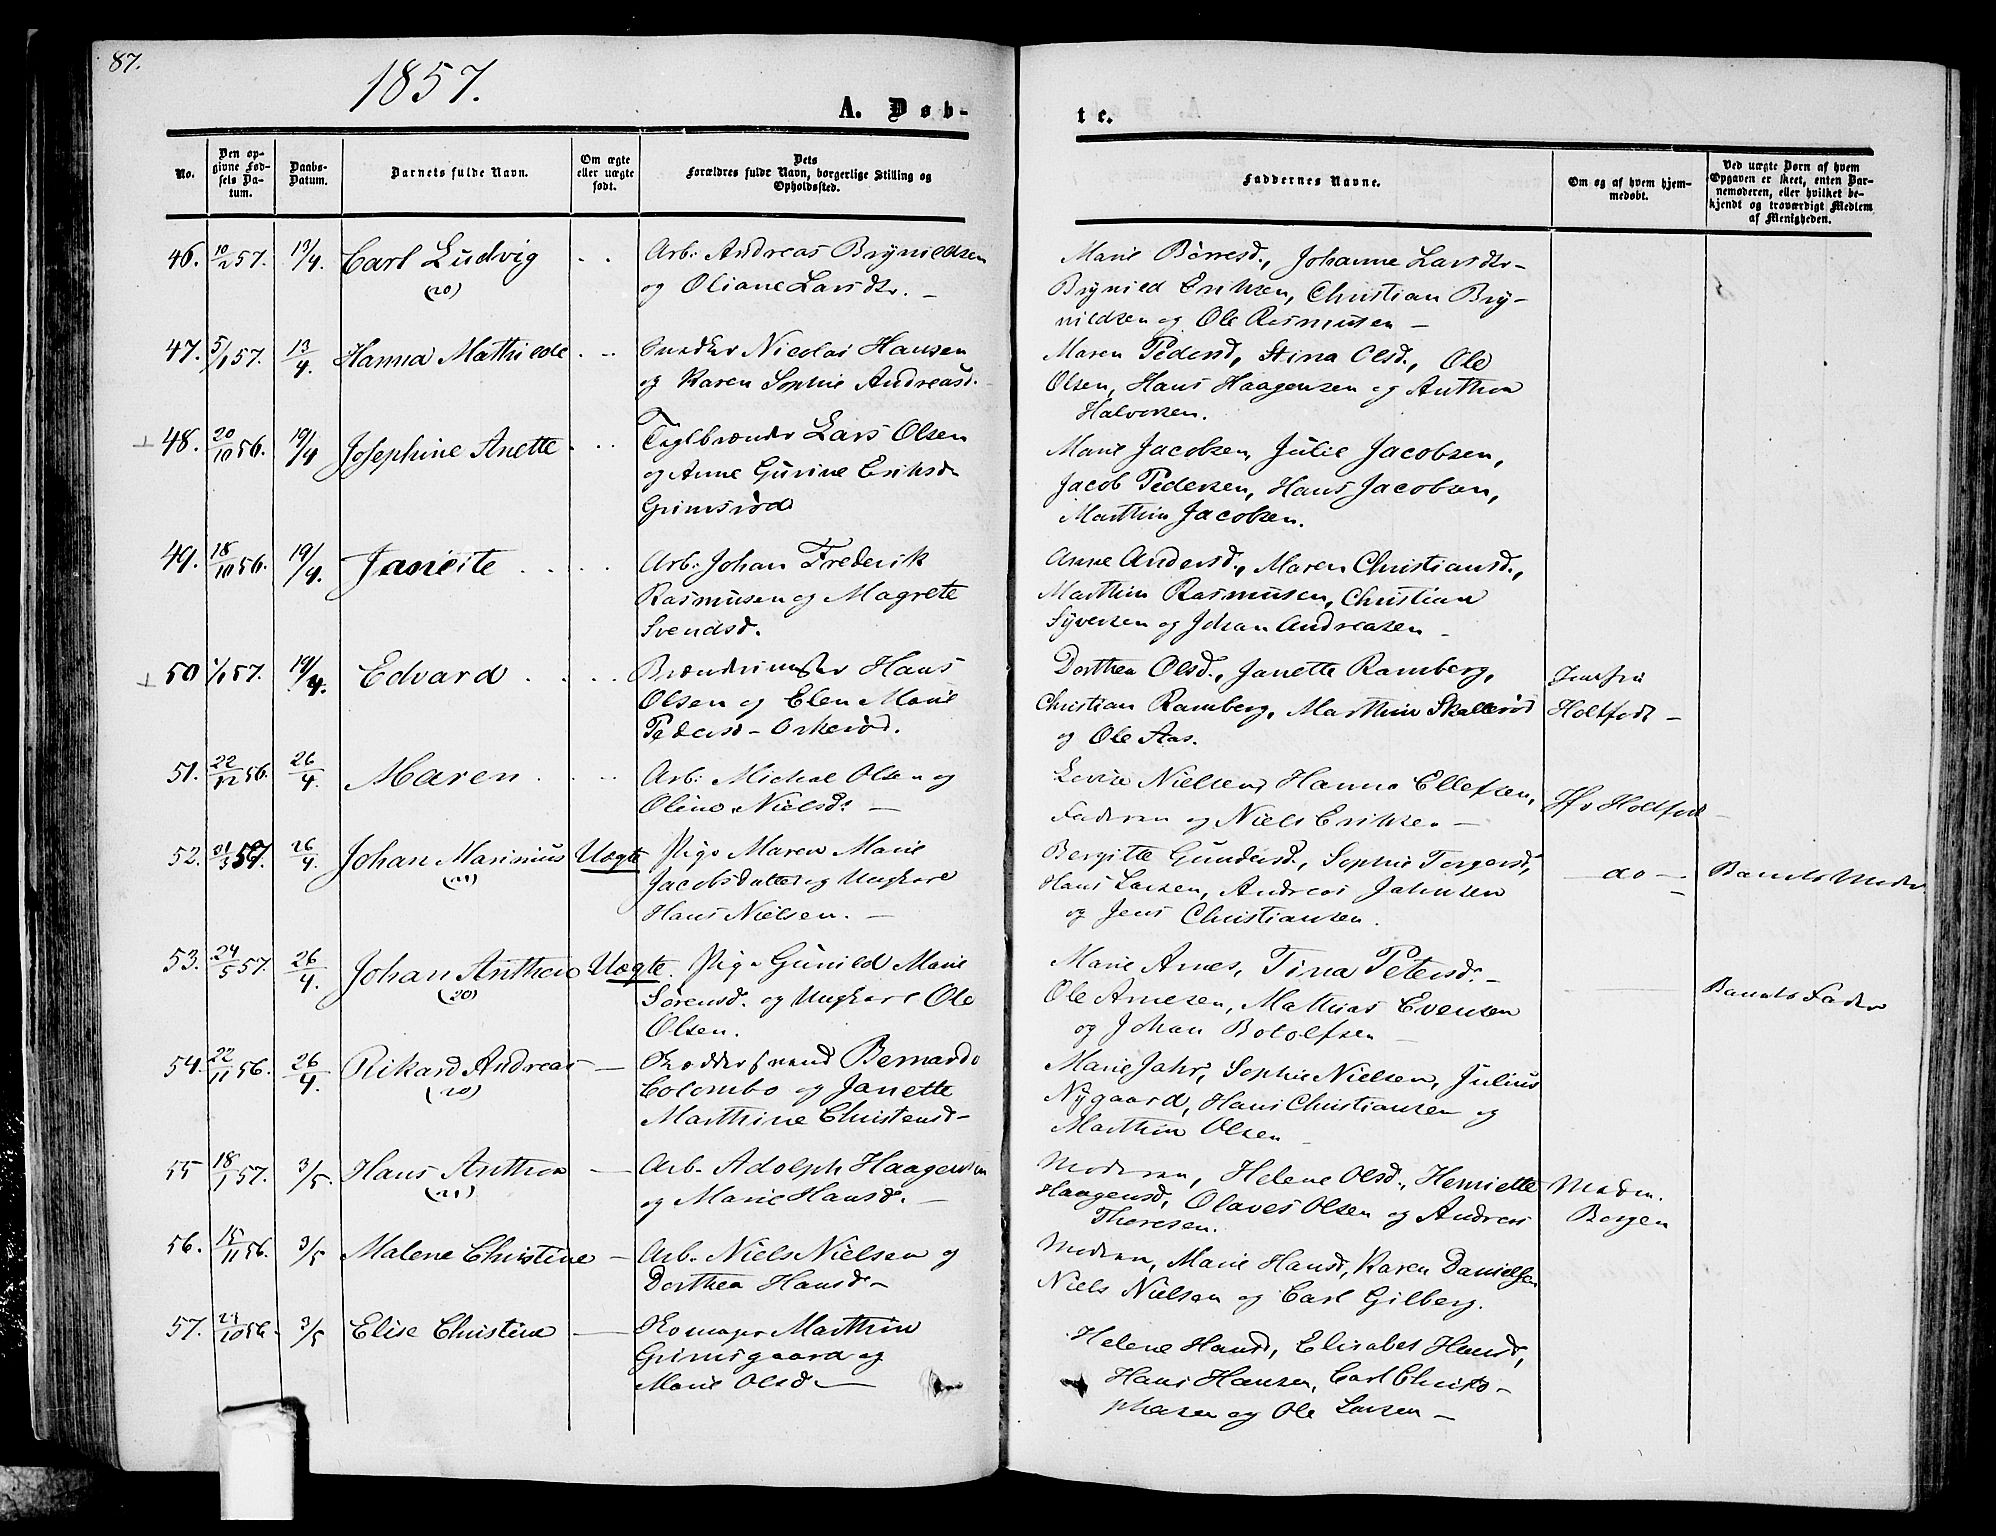 87.
1857.
A. Døb-
te.
No.
Den op-
givne Fød-
sels Da-
tum.
Daabs-
Datum.
Barnets fulde Navn.
Om ægte
eller uægte
født.
Dets
Forældres fulde Navn, borgerlige Stilling og
Opholdssted.
Faddernes Navne.
Om og af hvem hjem-
medøbt.
Ved uægte Børn af hvem
Opgaven er skeet, enten Bar-
nemoderen, eller hvilket be-
kjendt og troværdigt Medlem
af Menigheden.
46. 10/2 57. 13/4. Carl Ludvig
(20)
Arb: Andreas Brynildsen
og Oliane Larsdtr. —
Marie Børresd., Johanne Larsdtr-
Brynild Eriksen, Christian Bry-
nildsen og Ole Rasmusen —
47. 5/1 57. 13/4. Hanna Mathilde
Snedker Nicolai Hansen
og Karen Sophie Andreasd.
Maren Pedersd, Stina Olsd., Ole
Olsen, Hans Haagensen og Anthon
Halvorsen.
48. 20/10 56. 19/4 Josephine Anette
Teglbrænder Lars Olsen
og Anne Gurine Eriksd-
Grimsrød
Marie Jacobsen, Julie Jacobsen,
Jacob Pedersen, Hans Jacobsen,
Marthin Jacobsen.
49. 18/10 56. 19/4. Janette
Arb. Johan Frederik
Rasmusen og Magrete
Svendsd.
Anne Andersd., Maren Christiansd.,
Marthin Rasmusen, Christian
Syversen og Johan Andreasen —
50 1/1 57. 19/4. Edvard
Brændrimester Hans
Olsen og Elen Marie
Pedersd — Orkerød.
Dorthea Olsd., Janette Ramberg,
Christian Ramberg, Marthin Skallerød
og Ole Aas.
Jomfru
Holtfodt —
51. 22/12 56. 26/4. Maren
Arb: Michael Olsen og
Oline Nielsd. —
Lovise Nielsen, Hanna Ellefsen,
Faderen og Niels Eriksen —
Jfr Holtfodt —
52. 31/3 57. 26/4. Johan Marinius Uægte
(21)
Pige Maren Marie
Jacobsdatter og Ungkarl
Hans Nielsen. —
Bergitte Gundersd., Sophie Torgersd,
Hans Larsen, Andreas Jahnsen
og Jens Christiansen.
— do —
Barnets Moder
53. 24/5 57. 26/4. Johan Anthon Uægte.
(20)
Pige Gunild Marie
Sørensd. og Ungkarl Ole
Olsen.
Marie Arnes, Tina Petersd. —
Ole Arnesen, Mathias Evensen
og Johan Botolfsen —
Barnets Fader
54. 22/11 56. 26/4. Rikard Andreas —
(20)
Bernardo
Colombo og Janette
Marthine Christensd —
Marie Jahr, Sophie Nielsen, Julius
Nygaard, Hans Christiansen og
Marthin Olsen —
55 18/1 57. 3/5. Hans Anthon —
(21)
Arb. Adolph Haagensen
og Marie Hansd. —
Moderen, Helene Olsd., Henriette
Haagensd, Olaves Olsen og Andreas
Thoresen.
Madm.
Borgen
56. 15/11 56. 3/5 Malene Christine —
Arb. Niels Nielsen og
Dorthea Hansd —
Moderen, Marie Hansd, Karen Danielsen
Niels Nielsen og Carl Gilberg.
57. 23/10 56. 3/5 Elise Christine —
Skomager Marthin
Grimsgaard og
Marie Olsd —
Helene Hansd, Elisabet Hansd,
Hans Hansen, Carl Christo-
phersen og Ole Larsen —